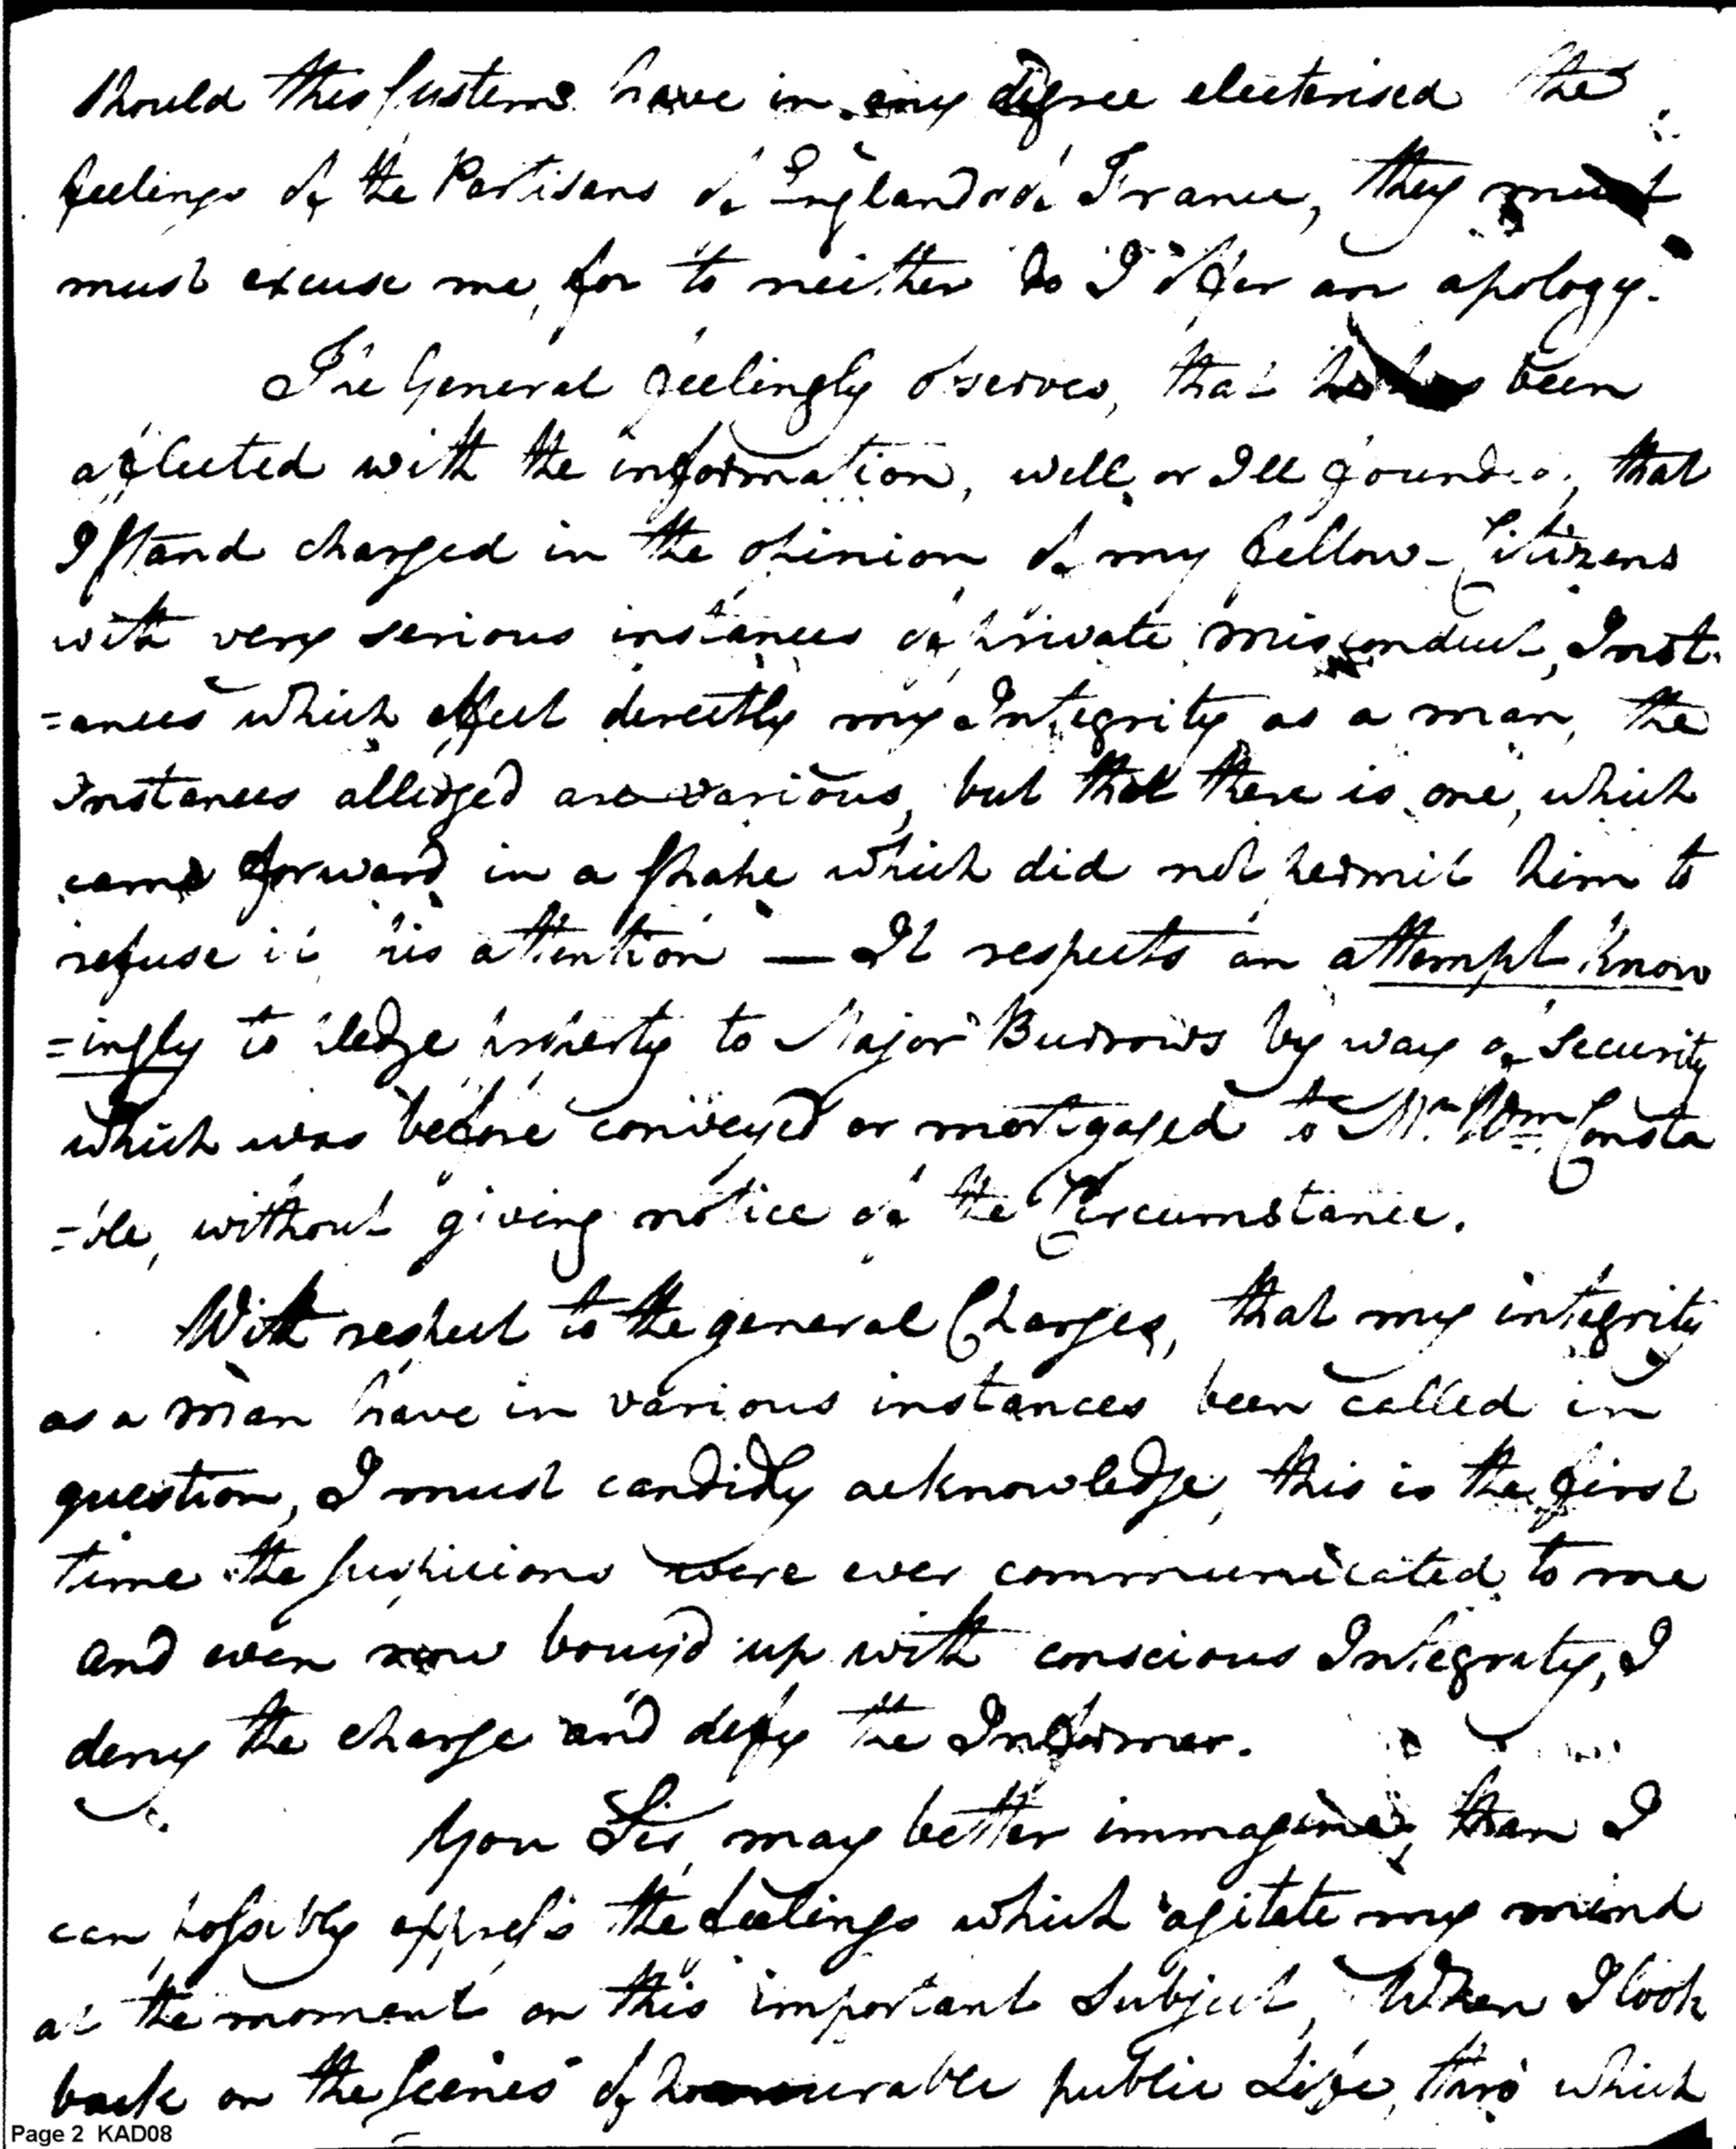 should this system have in any degree electerised the
feelings of the Partisans of England or of France, they must
must excuse me, for to neither do I offer an apology.
The General feelingly observes, that he has been
afflicted with the information, well or Ill founded, that
I stand charged in the opinion of my fellow-Citizens
with very serious instances of private misconduct, Inst-
=ances which effect directly my Integrity as a man, the
Instances alledged are various, but that there is one, which
came forward in a shape which did not permit him to
refuse it his attention — It respects an attempt know
=ingly to pledge property to Major Burrows by way of security
which was before conveyed or mortgaged to Mr. Wm. Consta
=ble, without giving notice of the Circumstance.
With respect to the general Charges, that my integrity
as a man have in various instances been called in
question, I must candidly acknowledge, this is the first
time the suspicions were ever communicated to me
and even now bouy'd up with conscious Integrity, I
deny the charge and defy the Informer.
You Sir, may better immagine, than I
can possibly express the feelings which agitate my mind
at the moment on this important Subject, When I look
back on the scenes of honourable public Life, thro' which
Page 2 KAD08